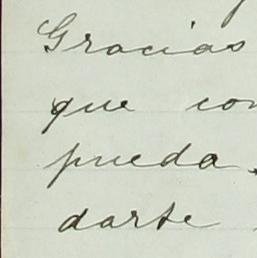 Gracias
que con
pueda.
darte